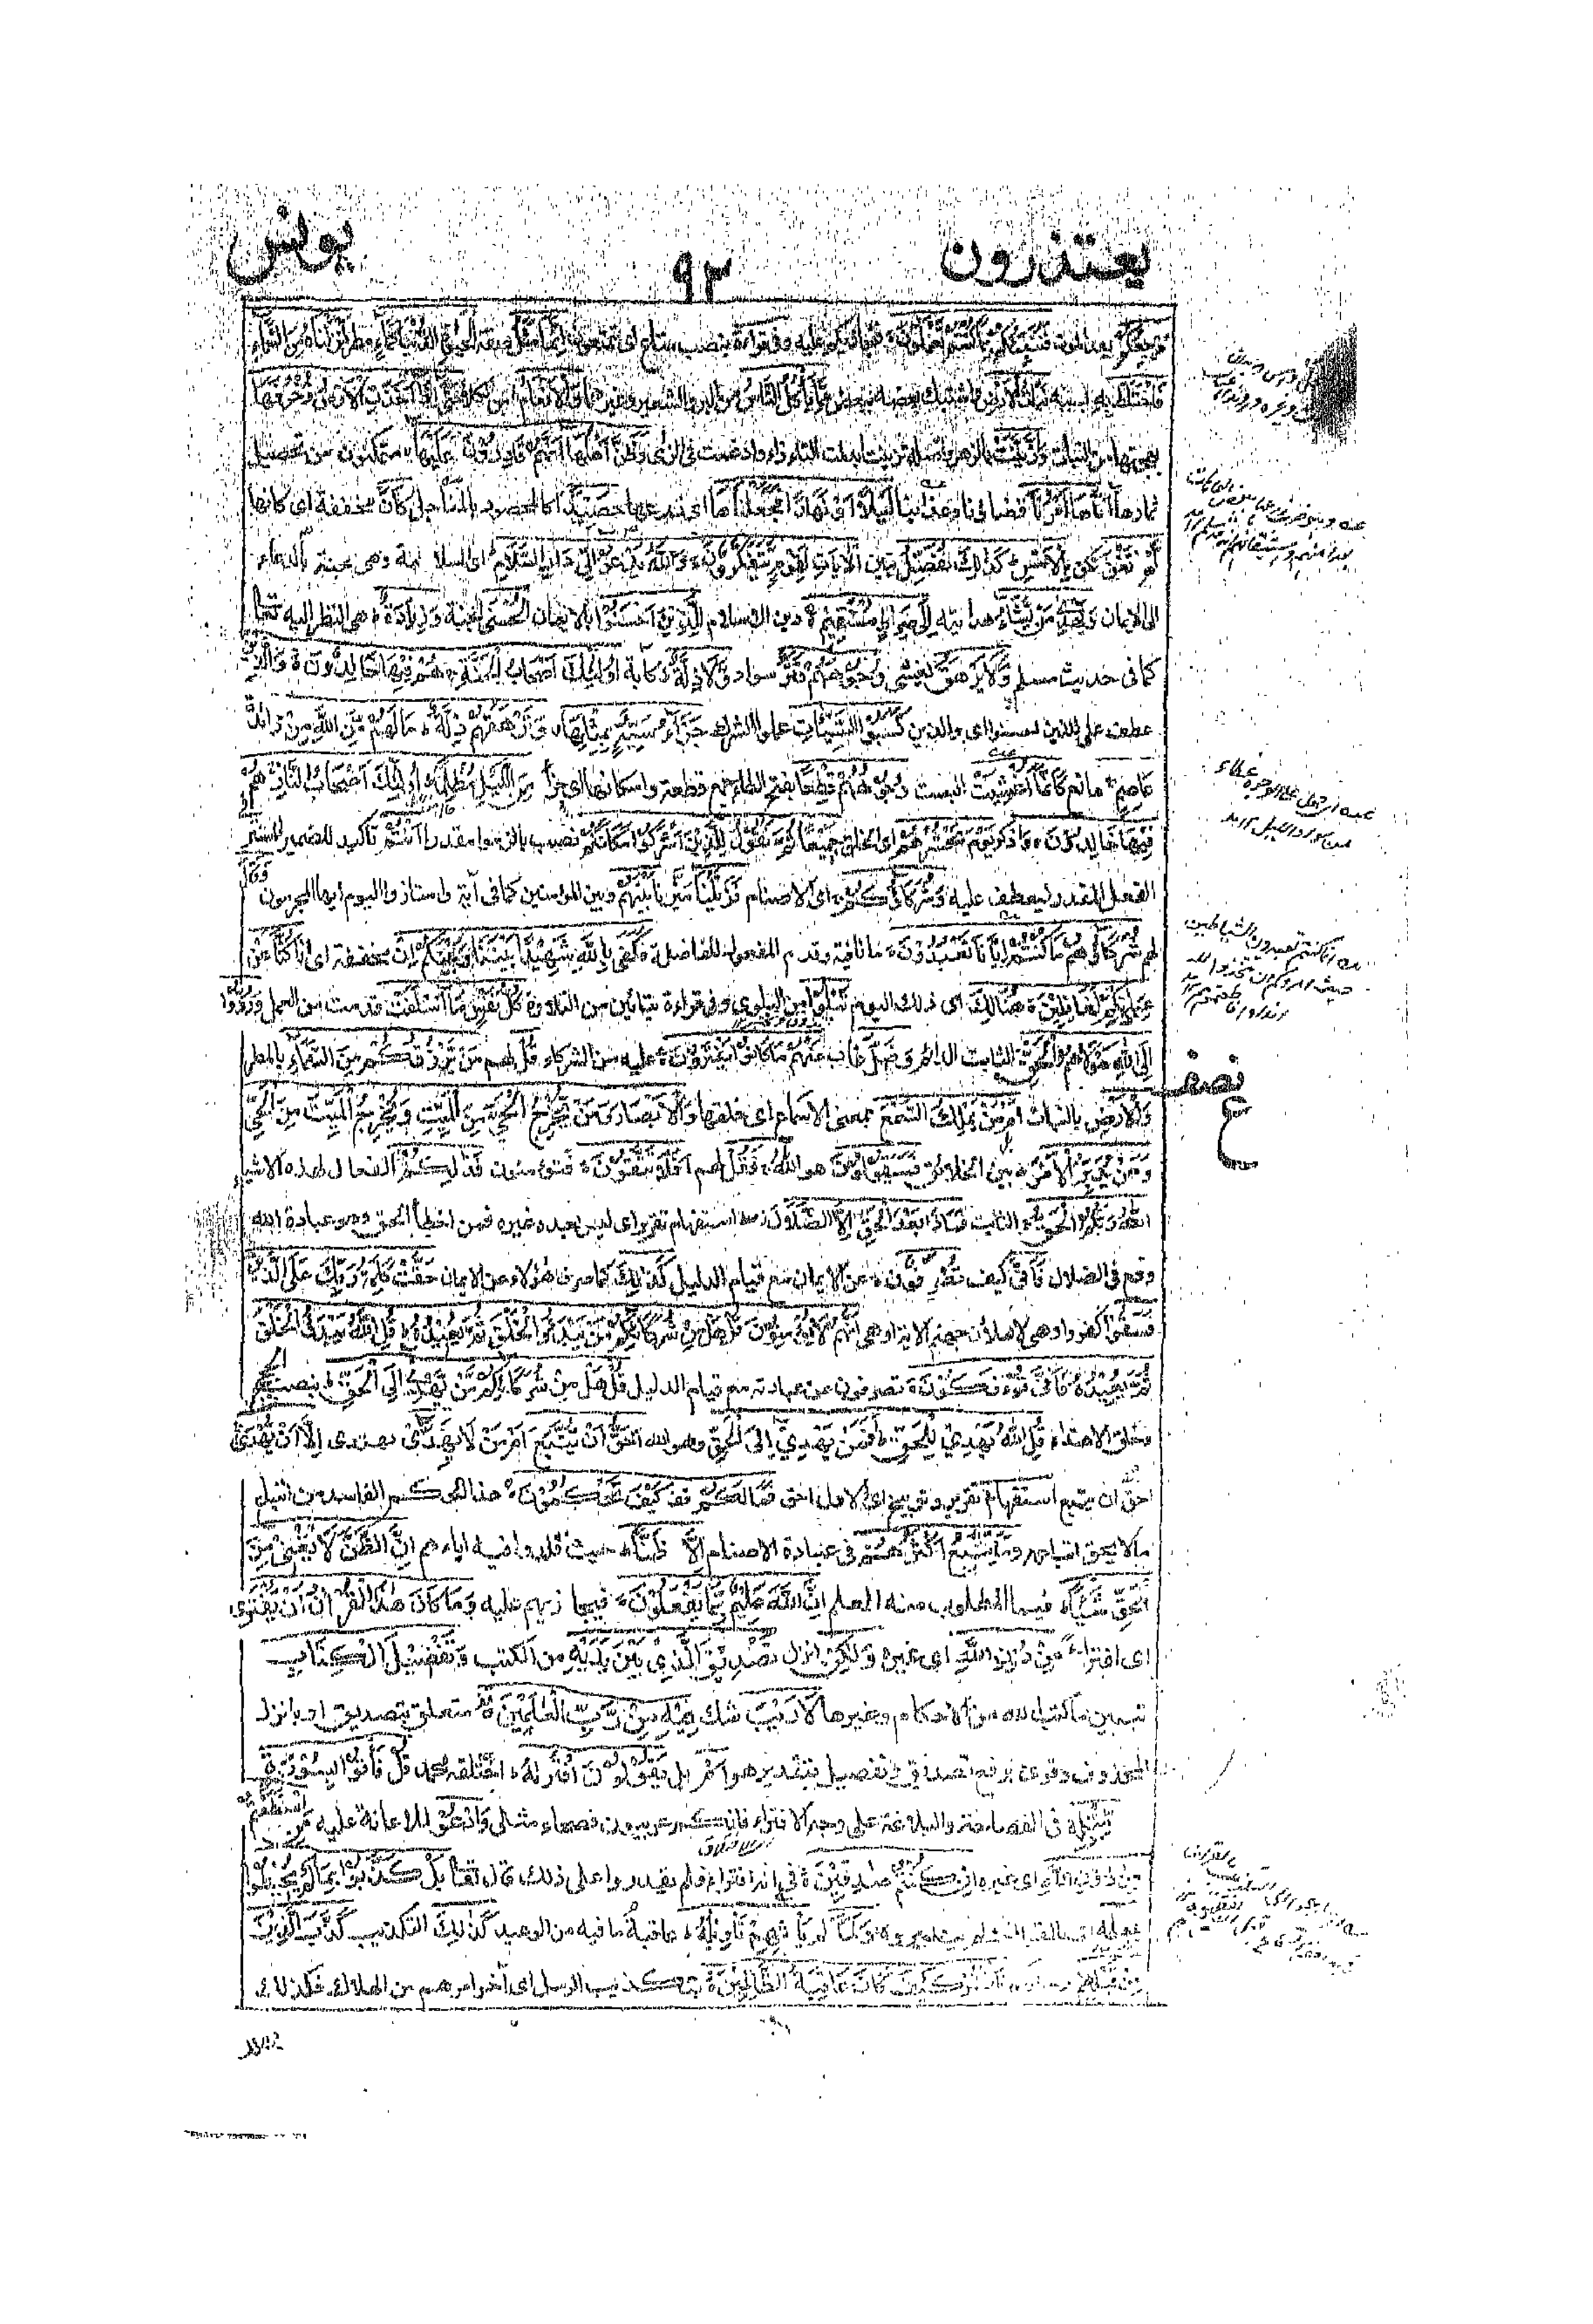 يعتذرون
٩٣
يونس
مَرْجِعُكُمْ بعد الموت فَنُنَبِّئُكُمْ بِمَا كُنْتُمْ تَعْمَلُوْنَ فنجازيكم عليه وفى قراءة بنصب متاع اى تتمتعون اِنَّمَا مَثَلُ صفة الْحَيٰوةِ الدُّنْيَا كَمَآءٍ مطر اَنْزَلْنٰهُ مِنَ السَّمَآءِ
فَاخْتَلَطَ بِهٖ بسببه نَبَاتُ الْاَرْضِ واشتبك بعضه ببعض مِمَّا يَأْكُلُ النَّاسُ من البر والشعير وغيرهما وَالْاَنْعَامُ من الكلأ حَتّٰى اِذَا اَخَذَتِ الْاَرْضُ زُخْرُفَهَا
بهجتها من النبات وَازَّيَّنَتْ بالزهر واصله تزينت ابدلت التاء زاء وادغمت فى الزاى وَظَنَّ اَهْلُهَا اَنَّهُمْ قَادِرُوْنَ عَلَيْهَا متمكنون من تحصيل
ثمارها اَتٰهَا اَمْرُنَا قضاؤنا وعذابنا لَيْلًا اَوْ نَهَارًا فَجَعَلْنٰهَا اى زرعها حَصِيْدًا كالمحصود بالمناجل كَاَنْ مخففة اى كانها
لَّمْ تَغْنَ تكن بِالْاَمْسِ كَذٰلِكَ نُفَصِّلُ نبين الْاٰيٰتِ لِقَوْمٍ يَّتَفَكَّرُوْنَ وَاللّٰهُ يَدْعُوْ اِلٰى دَارِ السَّلٰمِ اى السلامة وهى الجنة بالدعاء
الى الايمان وَيَهْدِيْ مَنْ يَّشَآءُ هدايته اِلٰى صِرَاطٍ مُّسْتَقِيْمٍ دين الاسلام لِلَّذِيْنَ اَحْسَنُوا بالايمان الْحُسْنٰى الجنة وَزِيَادَةٌ هى النظر اليه تعالى
كما فى حديث مسلم وَلَا يَرْهَقُ يغشى وُجُوْهَهُمْ قَتَرٌ سواد وَّلَا ذِلَّةٌ كآبة اُولٰٓئِكَ اَصْحٰبُ الْجَنَّةِ هُمْ فِيْهَا خٰلِدُوْنَ وَالَّذِيْنَ
عطف على للذين احسنوا اى وللذين كَسَبُوا السَّيِّاٰتِ عملوا الشرك جَزَآءُ سَيِّئَةٍ بِمِثْلِهَا وَتَرْهَقُهُمْ ذِلَّةٌ مَا لَهُمْ مِّنَ اللّٰهِ مِنْ زائدة
عَاصِمٍ مانع كَاَنَّمَا اُغْشِيَتْ البست وُجُوْهُهُمْ قِطَعًا بفتح الطاء جمع قطعة واسكانها اى جزأ مِنَ اللَّيْلِ مُظْلِمًا اُولٰٓئِكَ اَصْحٰبُ النَّارِ هُمْ
فِيْهَا خٰلِدُوْنَ وَ اذكر يَوْمَ نَحْشُرُهُمْ اى الخلق جَمِيْعًا ثُمَّ نَقُوْلُ لِلَّذِيْنَ اَشْرَكُوْا مَكَانَكُمْ نصب بالزموا مقدرا اَنْتُمْ تأكيد للضمير المستتر فى
الفعل المقدر ليعطف عليه وَشُرَكَآؤُكُمْ اى الاصنام فَزَيَّلْنَا ميزنا بَيْنَهُمْ وبين المؤمنين كما فى آية وامتازوا اليوم ايها المجرمون وَقَالَ
لهم شُرَكَآؤُهُمْ مَا كُنْتُمْ اِيَّانَا تَعْبُدُوْنَ ما نافية وقدم المفعول للفاصلة فَكَفٰى بِاللّٰهِ شَهِيْدًا بَيْنَنَا وَبَيْنَكُمْ اِنْ مخففة اى انا كُنَّا عَنْ
عِبَادَتِكُمْ لَغٰفِلِيْنَ هُنَالِكَ اى ذلك اليوم تَبْلُوْا من البلوى وفى قراءة بتائين من التلاوة كُلُّ نَفْسٍ مَّا اَسْلَفَتْ قدمت من العمل وَرُدُّوْا
اِلَى اللّٰهِ مَوْلٰهُمُ الْحَقِّ الثابت الدائم وَضَلَّ غاب عَنْهُمْ مَّا كَانُوْا يَفْتَرُوْنَ عليه من الشركاء قُلْ لهم مَنْ يَّرْزُقُكُمْ مِّنَ السَّمَآءِ بالمطر
نصف
ع
وَالْاَرْضِ بالنبات اَمَّنْ يَّمْلِكُ السَّمْعَ بمعنى الاسماع اى خلقها وَالْاَبْصَارَ وَمَنْ يُّخْرِجُ الْحَيَّ مِنَ الْمَيِّتِ وَيُخْرِجُ الْمَيِّتَ مِنَ الْحَيِّ
وَمَنْ يُّدَبِّرُ الْاَمْرَ بين الخلائق فَسَيَقُوْلُوْنَ هو اللّٰهُ فَقُلْ لهم اَفَلَا تَتَّقُوْنَ فتؤمنون فَذٰلِكُمُ الفعال لهذه الاشياء
اللّٰهُ رَبُّكُمُ الْحَقُّ الثابت فَمَاذَا بَعْدَ الْحَقِّ اِلَّا الضَّلٰلُ استفهام تقرير اى ليس بعده غيره فمن اخطأ الحق وهو عبادة الله
وقع فى الضلال فَاَنّٰى كيف تُصْرَفُوْنَ عن الايمان مع قيام الدليل كَذٰلِكَ كما صرف هؤلاء عن الايمان حَقَّتْ كَلِمَتُ رَبِّكَ عَلَى الَّذِيْنَ
فَسَقُوْا كفروا وهى لاملأن جهنم الاية او هى اَنَّهُمْ لَا يُؤْمِنُوْنَ قُلْ هَلْ مِنْ شُرَكَآئِكُمْ مَّنْ يَّبْدَؤُا الْخَلْقَ ثُمَّ يُعِيْدُهٗ قُلِ اللّٰهُ يَبْدَؤُا الْخَلْقَ
ثُمَّ يُعِيْدُهٗ فَاَنّٰى تُؤْفَكُوْنَ تصرفون عن عبادته مع قيام الدليل قُلْ هَلْ مِنْ شُرَكَآئِكُمْ مَّنْ يَّهْدِيْ اِلَى الْحَقِّ بنصب الحجج
وخلق الاهتداء قُلِ اللّٰهُ يَهْدِيْ لِلْحَقِّ اَفَمَنْ يَّهْدِيْ اِلَى الْحَقِّ وهو الله اَحَقُّ اَنْ يُّتَّبَعَ اَمَّنْ لَّا يَهِدِّيْ يهتدى اِلَّا اَنْ يُّهْدٰى
احق ان يتبع استفهام تقرير وتوبيخ اى الاول احق فَمَا لَكُمْ كَيْفَ تَحْكُمُوْنَ هذا الحكم الفاسد من اتباع
مالا يحق اتباعه وَمَا يَتَّبِعُ اَكْثَرُهُمْ فى عبادة الاصنام اِلَّا ظَنًّا حيث قلدوا فيه اباءهم اِنَّ الظَّنَّ لَا يُغْنِيْ مِنَ
الْحَقِّ شَيْئًا فيما المطلوب منه العلم اِنَّ اللّٰهَ عَلِيْمٌ بِمَا يَفْعَلُوْنَ فيجازيهم عليه وَمَا كَانَ هٰذَا الْقُرْاٰنُ اَنْ يُّفْتَرٰى
اى افتراء مِنْ دُوْنِ اللّٰهِ اى غيره وَلٰكِنْ انزل تَصْدِيْقَ الَّذِيْ بَيْنَ يَدَيْهِ من الكتب وَتَفْصِيْلَ الْكِتٰبِ
تبيين ما كتب الله من الاحكام وغيرها لَا رَيْبَ شك فِيْهِ مِنْ رَّبِّ الْعٰلَمِيْنَ متعلق بتصديق او بانزل
المحذوف وقرئ برفع تصديق وتفصيل بتقدير هو اَمْ بل يَقُوْلُوْنَ افْتَرٰىهُ اختلقه محمد قُلْ فَأْتُوْا بِسُوْرَةٍ
مِّثْلِهٖ فى الفصاحة والبلاغة على وجه الافتراء فانكم عربيون فصحاء مثلى وَادْعُوْا للاعانة عليه مَنِ اسْتَطَعْتُمْ
مِّنْ دُوْنِ اللّٰهِ اى غيره اِنْ كُنْتُمْ صٰدِقِيْنَ فى انه افتراء فلم يقدروا على ذلك قال تعالى بَلْ كَذَّبُوْا بِمَا لَمْ يُحِيْطُوْا
بِعِلْمِهٖ اى القران ولم يتدبروه وَلَمَّا لم يَأْتِهِمْ تَأْوِيْلُهٗ عاقبة ما فيه من الوعيد كَذٰلِكَ التكذيب كَذَّبَ الَّذِيْنَ
مِنْ قَبْلِهِمْ رسلهم فَانْظُرْ كَيْفَ كَانَ عَاقِبَةُ الظّٰلِمِيْنَ بتكذيب الرسل اى آخر امرهم من الهلاك فكذلك